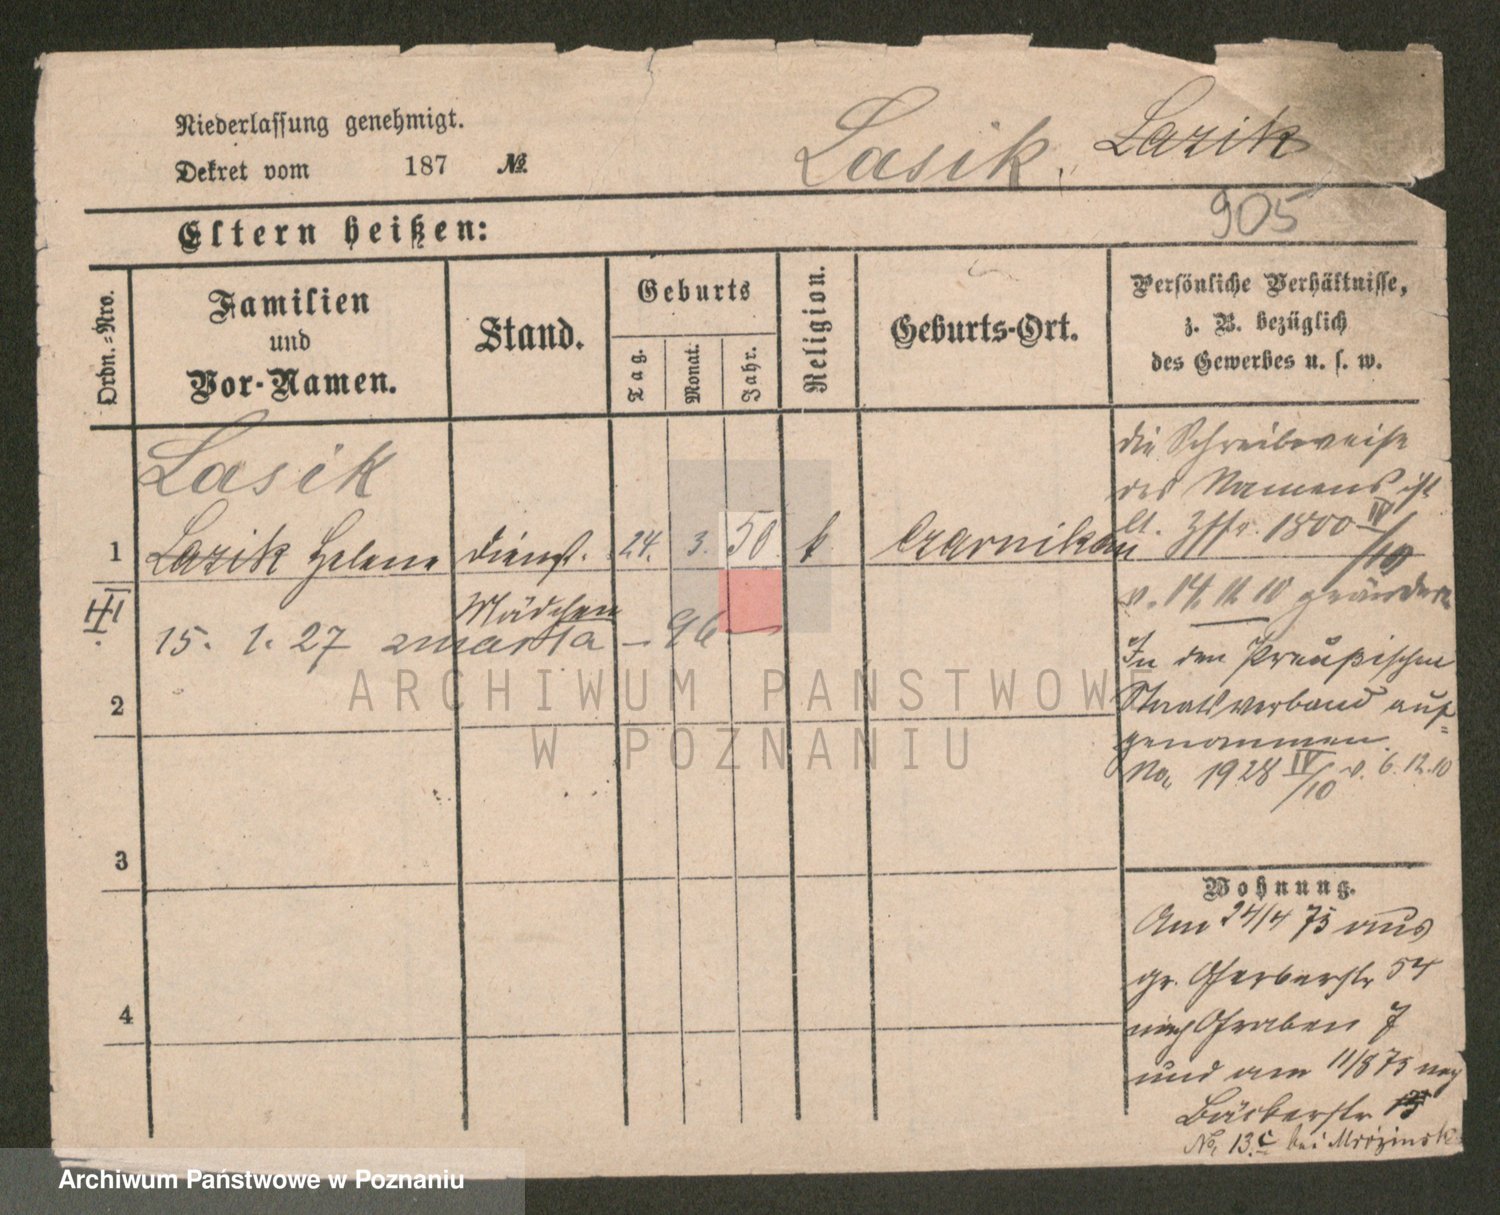 Niederlassung genehmigt.
Dekret vom 187 №
Lasik, Lazik
905
Eltern heißen:
Ordn.-Nro.
Familien
und
Vor-Namen.
Stand.
Geburts
Tag.
Monat.
Jahr.
Religion.
Geburts-Ort.
Persönliche Verhältnisse,
z. B. bezüglich
des Gewerbes u. s. w.
Lasik
1 Lazik Helene Dienst. 24. 3. 50 k Czarnikau
Mädchen
15. 1. 27 zmarła — 96 —
2
3
4
die Schreibweise
des Namens ist
lt. 1800 IV/10
v. 14. 11. 10 geändert
In den Preußischen
Staatsverband auf=
genommen.
No. 1928 IV/10 v. 6. 12. 10
Wohnung.
Am 24/4 75 aus
gr. Gerberstr 54
nach Graben 7
und am 11/8 75 nach
Bäckerstr
No. 13.c bei
ARCHIWUM PAŃSTWOWE
W POZNANIU
Archiwum Państwowe w Poznaniu